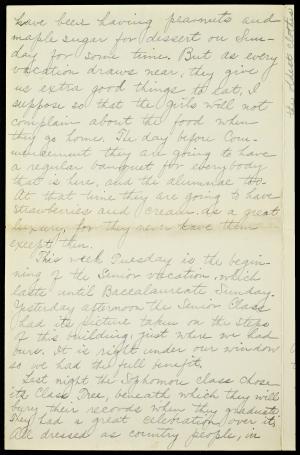 have been having peanuts and
maple sugar for dessert on Sun-
day for some time. But as every
vacation draws near, they give
us extra good things to eat, I
suppose so that the girls will not
complain about the food when
they go home. The day before Com-
mencement they are going to have
a regular banquet for everybody
that is here, and the alumnae too.
At that time they are going to have
strawberries and cream as a great
luxury, for they never have them
except then.
This week Tuesday is the begin-
ning of the Senior vacation, which
lasts until Baccalaureate Sunday.
Yesterday afternoon the Senior Class
had its picture taken on the steps
of this building, just where we had
ours. It is right under our window
so we had the full benefit.
Last night the Sophomore class chose
its Class Tree, beneath which they will
bury their records when they graduate.
They had a great celebration over it,
all dressed as country people, in
the oldest clothes